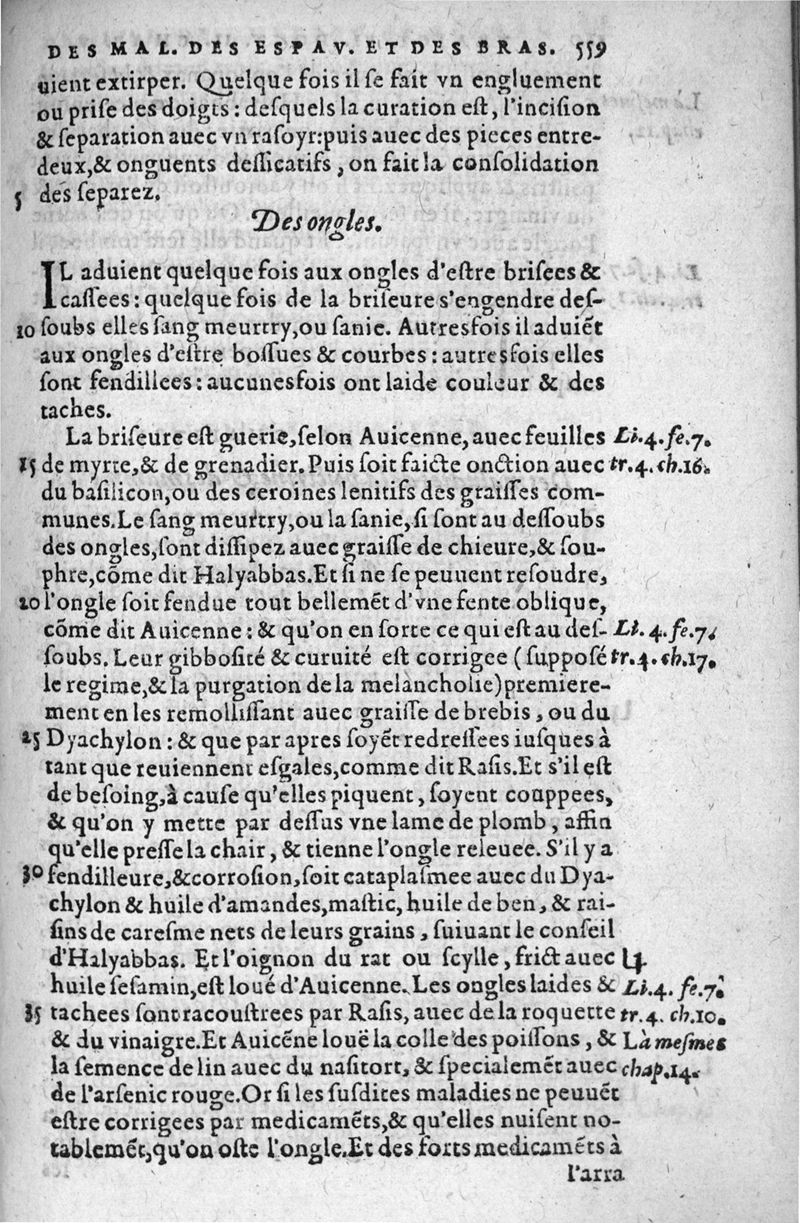 DES MAL. DES ESPAV. ET DES BRAS. 559
uient extirper. Quelque fois il ſe fait vn engluement
ou priſe des doigts : deſquels la curation eſt, l'inciſion
& ſeparation auec vn raſoyr:puis auec des pieces entre-
deux,& onguents deſſicatifs, on fait la conſolidation
5 des ſeparez.
Des ongles.
IL aduient quelque fois aux ongles d'eſtre briſees &
caſſees : quelque fois de la briſeure s'engendre deſ-
10 ſoubs elles ſang meurtry,ou ſanie. Autresfois il aduiẽt
aux ongles d'eſtre boſſues & courbes : autresfois elles
ſont fendillees : aucunesfois ont laide couleur & des
taches.
La briſeure eſt guerie,ſelon Auicenne,auec feuilles Li.4.fe.7.
15 de myrte,& de grenadier.Puis ſoit faicte onction auec tr.4.ch.16.
du baſilicon,ou des ceroines lenitifs des graiſſes com-
munes.Le ſang meurtry,ou la ſanie,ſi ſont au deſſoubs
des ongles,ſont diſſipez auec graiſſe de chieure,& ſou-
phre,cõme dit Halyabbas.Et ſi ne ſe peuuent reſoudre,
20 l'ongle ſoit fendue tout bellemẽt d'vne fente oblique,
cõme dit Auicenne : & qu'on en ſorte ce qui eſt au deſ- Li.4.fe.7.
ſoubs. Leur gibboſité & curuité eſt corrigee (ſuppoſé tr.4.ch.17.
le regime,& la purgation de la melancholie)premiere-
ment en les remolliſſant auec graiſſe de brebis, ou du
25 Dyachylon : & que par apres ſoyẽt redreſſees iuſques à
tant que reuiennent eſgales,comme dit Raſis.Et s'il eſt
de beſoing,à cauſe qu'elles piquent, ſoyent couppees,
& qu'on y mette par deſſus vne lame de plomb, affin
qu'elle preſſe la chair, & tienne l'ongle releuee. S'il y a
30 fendilleure,&corroſion,ſoit cataplaſmee auec du Dya-
chylon & huile d'amandes,maſtic,huile de ben, & rai-
ſins de careſme nets de leurs grains, ſuiuant le conſeil
d'Halyabbas. Et l'oignon du rat ou ſcylle, frict auec
huile ſeſamin,eſt loué d'Auicenne.Les ongles laides & Li.4. fe.7.
35 tachees ſont racouſtrees par Raſis, auec de la roquette tr.4. ch.10.
& du vinaigre.Et Auicẽne louë la colle des poiſſons, & Là meſmes
la ſemence de lin auec du naſitort, & ſpecialemẽt auec chap.14.
de l'arſenic rouge.Or ſi les ſuſdites maladies ne peuuẽt
eſtre corrigees par medicamẽts,& qu'elles nuiſent no-
tablemẽt,qu'on oſte l'ongle.Et des forts medicamẽts à
l'arra